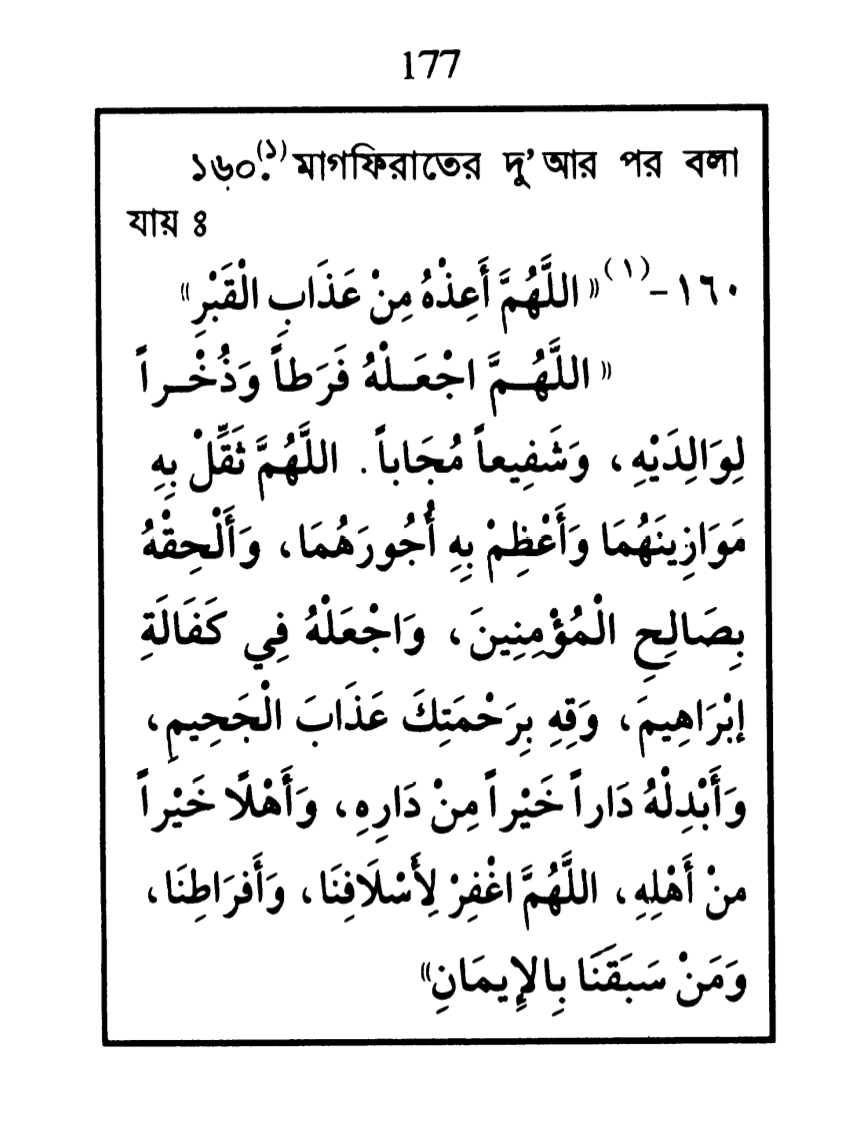 177
১৬০.(১) মাগফিরাতের দু'আর পর বলা
যায় ঃ
١٦٠-(١) «اللَّهُمَّ أَعِذْهُ مِنْ عَذَابِ الْقَبْرِ»
«اللَّهُــمَّ اجْعَــلْهُ فَرَطاً وَذُخْــراً
لِوَالِدَيْهِ، وَشَفِيعاً مُجَاباً. اللَّهُمَّ ثَقِّلْ بِهِ
مَوَازِينَهُمَا وَأَعْظِمْ بِهِ أُجُورَهُمَا، وَأَلْحِقْهُ
بِصَالِحِ الْمُؤْمِنِينَ، وَاجْعَلْهُ فِي كَفَالَةِ
إِبْرَاهِيمَ، وَقِهِ بِرَحْمَتِكَ عَذَابَ الْجَحِيمِ،
وَأَبْدِلْهُ دَاراً خَيْراً مِنْ دَارِهِ، وَأَهْلًا خَيْراً
منْ أَهْلِهِ، اللَّهُمَّ اغْفِرْ لِأَسْلَافِنَا، وَأَفرَاطِنَا،
وَمَنْ سَبَقَنَا بِالإِيمَانِ»